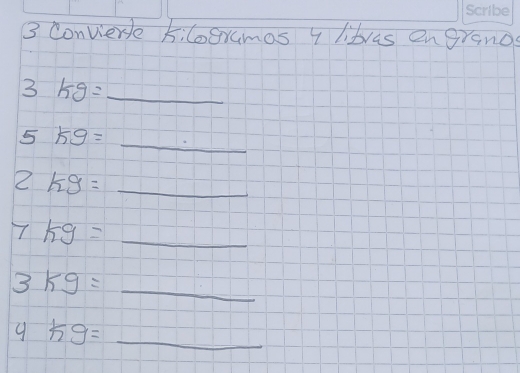 Scribe
3 Convierte Kilogramos y libras en gramos
3 kg = ________
5 kg = ________
2 kg = ________
7 kg = ________
3 kg = ________
4 kg = ________